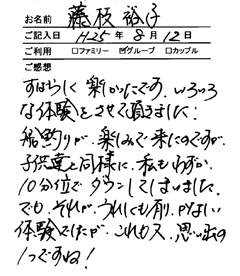 お名前 藤枝 裕子
ご記入日 H25年 8月 12日
ご利用 □ファミリー ☑グループ □カップル
ご感想
すばらしく楽しかったです。いろいろ
な体験をさせて頂きました!
船釣りが、楽しみで来たのですが、
子供達と同様に、私もわずか
10分位でダウンしてしまいました。
でも、それが、うれしくも有り、少ない
体験でしたが、これも又、思い出の
1つですね!